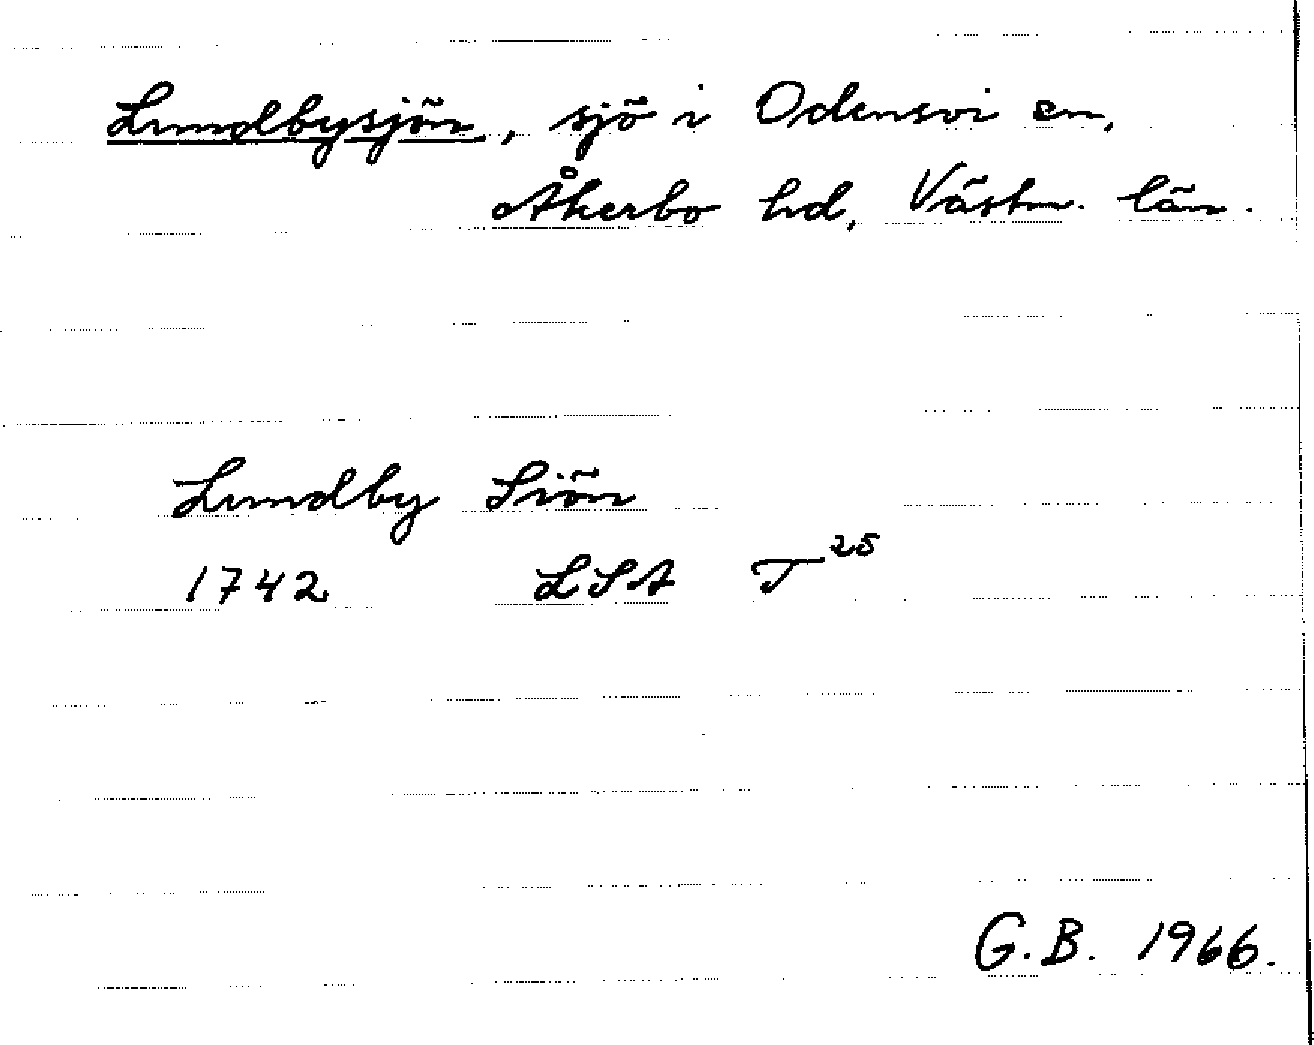 Lundbysjön, sjö i Odensvi sn,
Åkerbo hd, Västm. län.
Lundby Siön
1742 LSA T25
G.B. 1966.